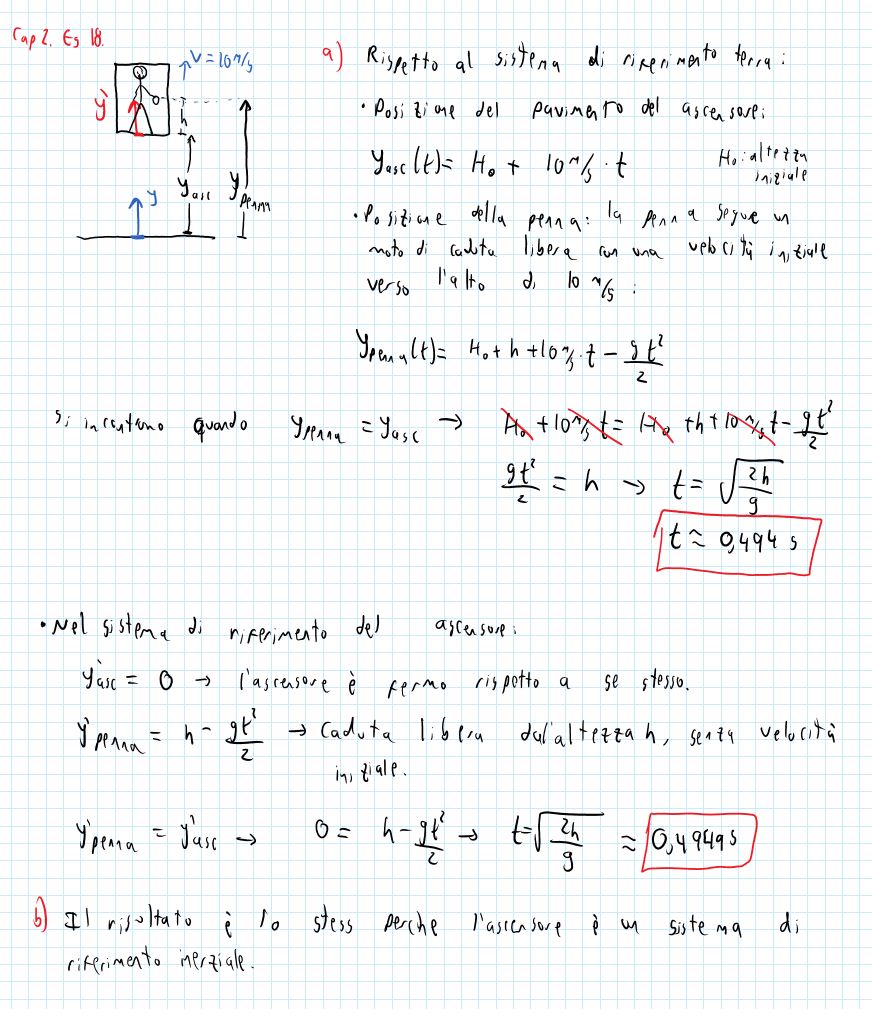 Cap 2. Es 18.
V = 10 m/s
y'
h
y
y_asc
y_penna
a) Rispetto al sistema di riferimento terra:
• Posizione del pavimento del ascensore:
y_asc(t) = H₀ + 10 m/s · t
H₀: altezza
iniziale
• Posizione della penna: la penna segue un
moto di caduta libera con una velocità iniziale
verso l'alto di 10 m/s :
y_penna(t) = H₀ + h + 10 m/s · t - gt²/2
Si incontano quando y_penna = y_asc → H₀ + 10 m/s t = H₀ + h + 10 m/s t - gt²/2
gt²/2 = h → t = √(2h/g)
t ≈ 0,494 s
• Nel sistema di riferimento del ascensore:
y'asc = 0 → l'ascensore è fermo rispetto a se stesso.
y'penna = h - gt²/2 → Caduta libera dall'altezza h, senza velocità
iniziale.
y'penna = y'asc → 0 = h - gt²/2 → t = √(2h/g) ≈ 0,4949 s
b) Il risultato è lo stess perche l'ascensore è un sistema di
riferimento inerziale.